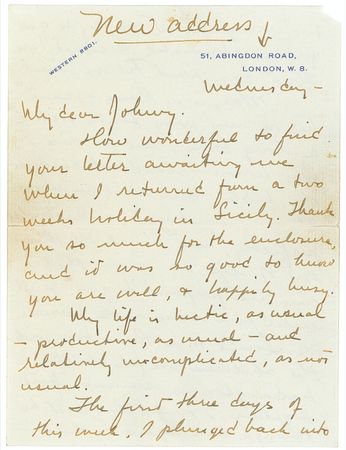 New address ↓
WESTERN 8801.
51, ABINGDON ROAD,
LONDON, W. 8.
Wednesday -
My dear Johnny.
How wonderful to find
your letter awaiting me
when I returned from a two
weeks holiday in Sicily. Thank
you so much for the enclosure,
and it was so good to know
you are well, & happily busy.
My life is hectic, as usual
- productive, as usual - and
relatively uncomplicated, as not
usual.
The first three days of
this week, I plunged back into